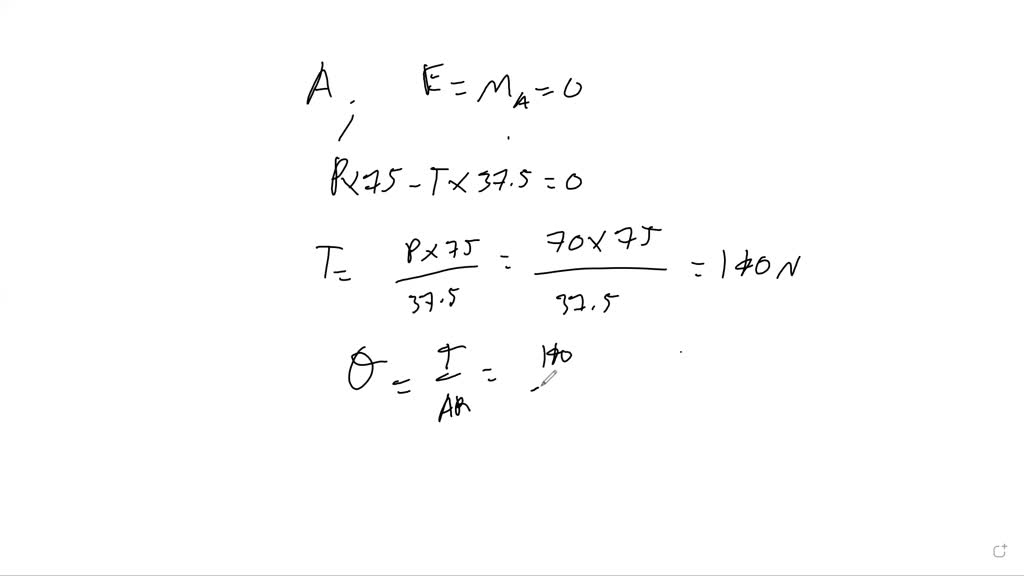 A, E = M_A = 0
P×75 - T×37.5 = 0
T = P×75 / 37.5 = 70×75 / 37.5 = 140 N
σ = T / AR = 140